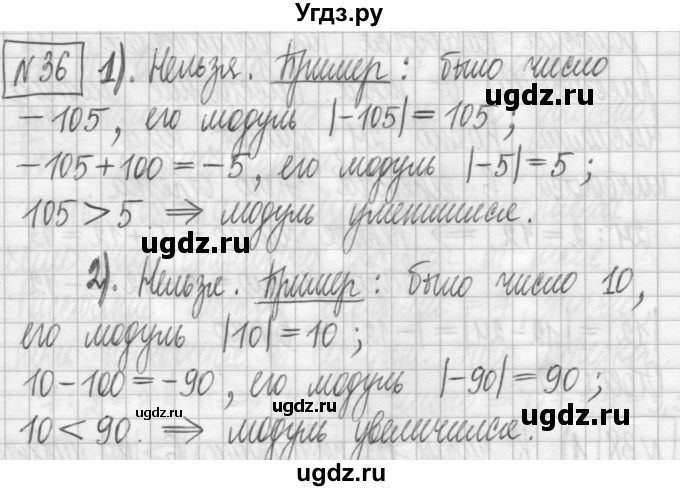 Угдз.ру
№36 1). Нельзя. Пример: было число
ugdz.ru
-105, его модуль |-105| = 105;
-105+100 = -5, его модуль |-5| = 5;
105 > 5 ⇒ модуль уменшился.
ugdz.ru
2). Нельзя. Пример: было число 10,
его модуль |10| = 10;
ugdz.ru
10-100 = -90, его модуль |-90| = 90;
ugdz.ru ugdz.ru
10 < 90. ⇒ модуль увеличился.
ugdz.ru
ugdz.ru